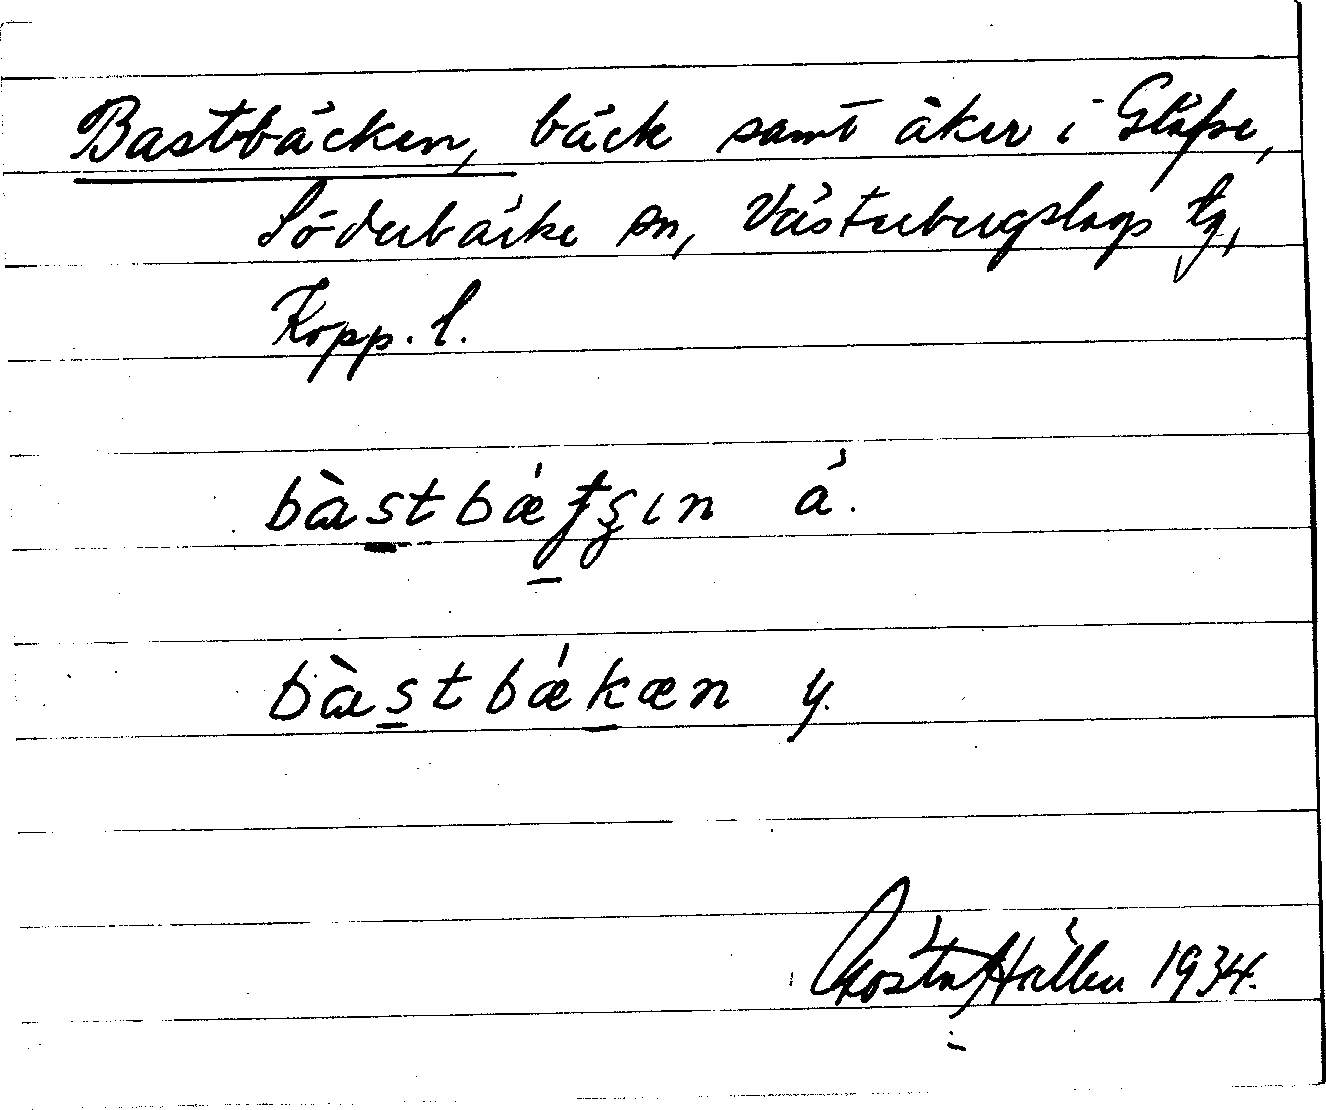 Bastbäcken, bäck samt åker i Gläfse,
Söderbärke sn, Västerbergslags tg,
Kopp. l.
bàstbǽ ä.
bàstbǽkæn y.
Gösta Hällen 1934.